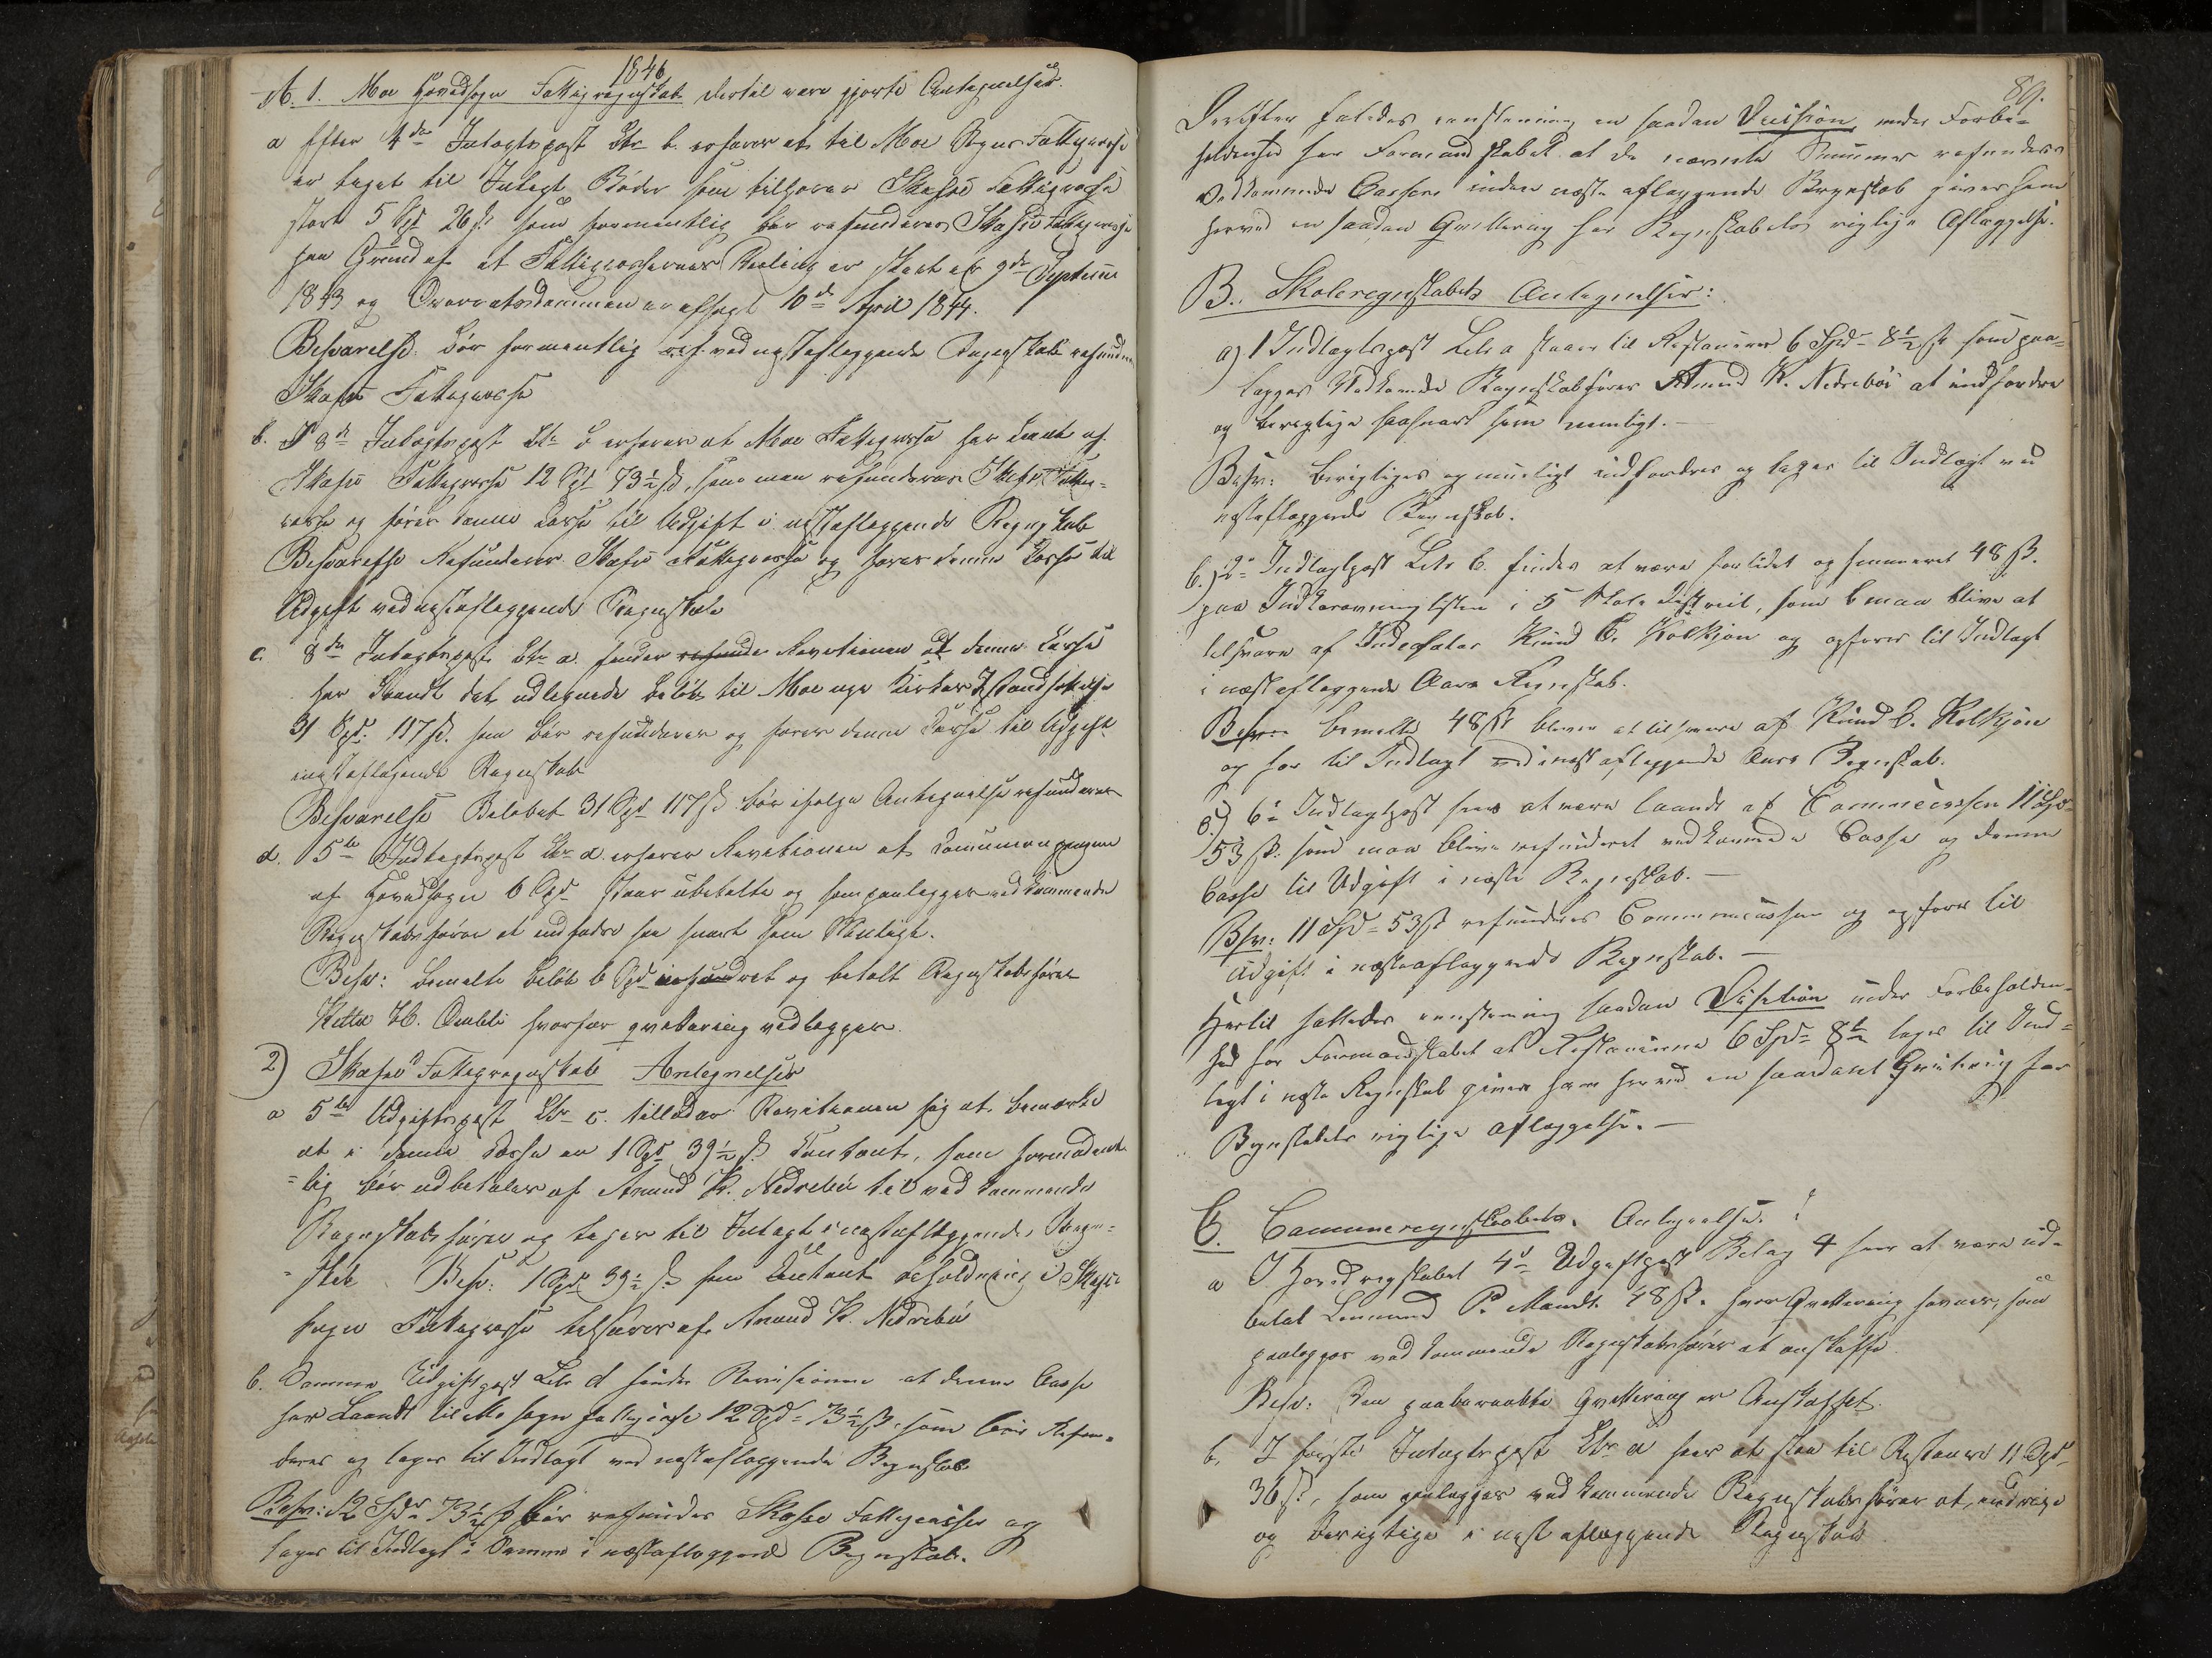 1846
A. 1. Moe Hovedsogn Fattigregnskab dertil være gjorte Antegnelser.
a Efter 4de Indtægtspost Ltr b. erfares at til Moe Sogns Fattigcasse
er taget til Indtægt Bøder som tilhører Skafsø Fattigcasse
stor 5 Spd 26 s. som formentlig bør refunderes Skafsø Fattigcasse
paa Grund af at Fattigcassernes Deeling er skeet etc 9de Septemr
1843 og Overretsdommen er afsagt 10de April 1844.
Besvarelse: bør formentlig ved næstaflæggende Regnskab refunderes
Skafsø Fattigcasse
b. I 8de Indtægtspost Ltr b erfares at Moe Fattigcasse har laant af
Skafsø Fattigcasse 12 Spd 73½ s, som man refunderer Skafsø Fattig-
casse og føres denne Casse til Udgift i næstaflæggende Regnskab
Besvarelse Refunderes Skafsø Fattigcasse og føres denne Casse til
Udgift ved næstaflæggende Regnskab
c. 8de Indtægtspost Ltr a. finder Revisionen at denne Casse
har laandt det udlignede Beløb til Moe nye Kirkes Istandsættelse
31 Spd. 117 s. som bør refunderes og føres denne Casse til Udgift
i næstaflæggende Regnskab
Besvarelse Beløbet 31 Spd 117 s bør ifølge Antegnelse refunderes
d. 5te Indtægtspost Ltr d. erfarer Revisionen at
af Hovedsogn 6 Spd staar ubetalte og som paalægges vedkommende
Regnskabsfører at indfodre saa snart som Muligt.
Besv: bemelte Beløb 6 Spd indfordret og betalt Regnskabsfører
hvorfor qvittering vedlægges.
2) Skafsø Fattigregnskab Antegnelser
a 5te Udgiftspost Ltr c. tillader Revisionen sig at bemærke
at i denne Casse er 1 Spd 39½ s. Contant, som formodent-
=lig bør udbetales af Anund K. Nedrebø til vedkommende
Regnskabsfører og tages til Indtægt i næstaflæggende Regn=
=skab. Besv: 1 Spd 39½ s. som Contant beholdning i Skafsø
sogns Fattigcasse tilsvares af Anund K. Nedrebø
b. Samme Udgiftpost Ltr d finder Revisionen at denne Casse
har Laandt til Mo sogns fattigcasse 12 Spd = 73½ s. som bør Refun=
deres og tages til Indtægt ved næstaflæggende Regnskab.
Besv: 12 Spd = 73½ s bør refundes Skafsø Fattigcasse og
tages til Indtægt i Samme i næstaflæggende Regnskab.
89.
Derefter fatedes eenstemig en saadan Decision under Forbe=
holdenhed for Formandskabet at de nævnte Summer refunderes
Vedkommende Casser inden næste aflæggende Regnskab gives ham
herved en saadan Qvittering for Regnskabets rigtige Aflæggelse.
B. Skoleregnskabets Antegnelser:
a) 1 Indtægtspost Litr a staaer til Restance 6 Spd = 8½ s som paa=
lægges Vedkomde Regnskabsfører Anund K. Nedrebøi at indfordre
og berigtige saasnart som mueligt. —
Besv: berigtiges og mueligt indfordres og tages til Indtægt ved
næstaflæggende Regnskab.
b.) 2de Indtægtpost Litr b. findes at være for lidet opsummeret 48 s.
paa Indkrævninglisten i 5 Skole distreict, som maa blive at
tilsvare af Knud E. Kolkjøn og opføres til Indtægt
i næstaflæggende Aars Regnskab.
Besv: bemelte 48 s bliver at tilsvare af Knud E. Kolkjøn
og før til Indtægt ved i næst aflæggende Aars Regnskab.
c.) 6te Indtægtpost sees at være laandt af Communecassen 11 Spd
53 s. som maa blive refunderet vedkomende Casse og denne
Casse til Udgift i næste Regnskab. —
Besv: 11 Spd = 53 s refunderes Communecassen og opføres til
Udgift i næsteaflæggende Regnskab. —
Hertil fattedes eenstemig saadan Desition under Forbeholden-
hed for Formandskabet at Restancerne 6 Spd = 8½ tages til Ind=
tægt i næste Regnskab gives ham herved en saadan Qvittering for
Regnskabets rigtige aflæggelse. —
C. Communeregnskabets Antegnelser:
a I Hovedregnskabet 4de Udgiftpost Bilag 4 sees at være ud-
betalt Lensmand P. Mandt 48 s. hvor Qvittering savnes, som
paalegges vedkommende Regnskabsfører at anskaffe.
Besv: Den paaberaabte Qvittering er Anskaffet.
b. I første Indtægtspost Ltr a sees at staa til Restance 11 Spd
36 s., som paalægges vedkommende Regnskabsfører at inddrive
og berigtige i næst aflæggende Regnskab